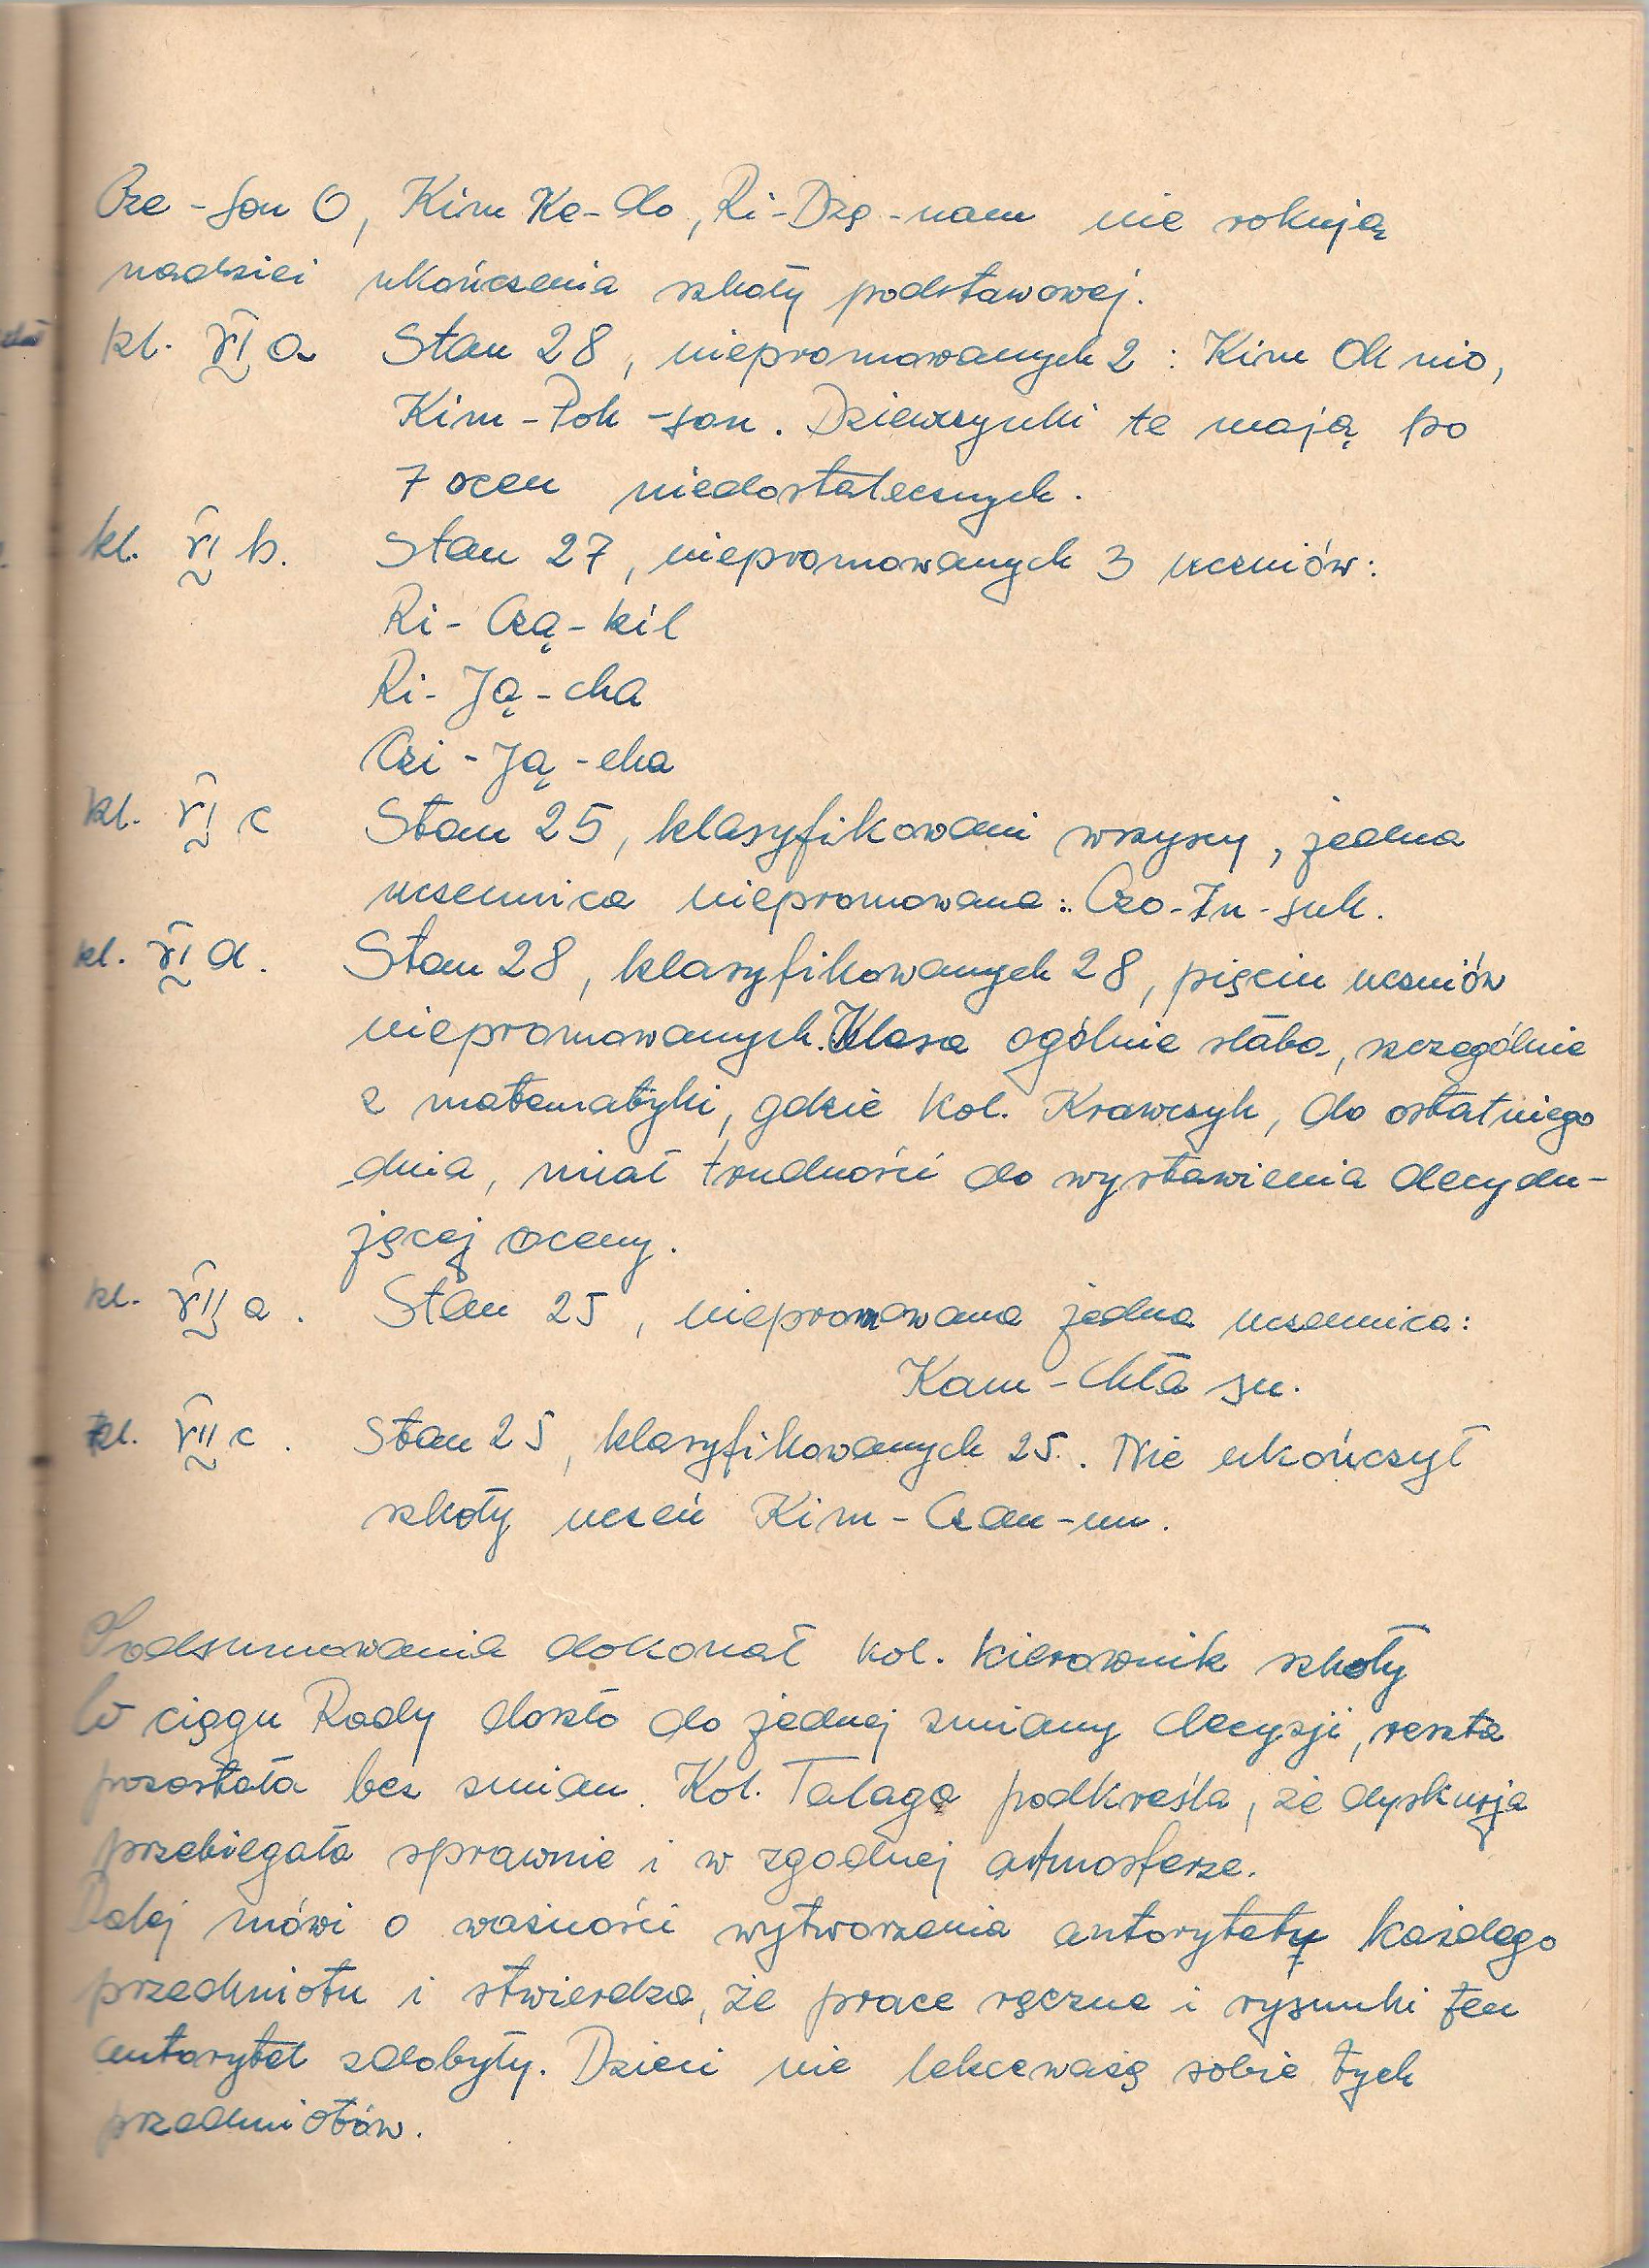 Cze-son O, Kim Ke-do, Ri-Dzę-nam nie rokują
nadziei ukończenia szkoły podstawowej.
kl. VI a Stan 28, niepromowanych 2: Kim Ok nio,
Kim-Pok-son. Dziewczynki te mają po
7 ocen niedostatecznych.
kl. VI b. Stan 27, niepromowanych 3 uczniów:
Ri-Czą-kil
Ri-Ją-cha
Czi-Ją-cha
kl. VI c Stan 25, klasyfikowani wszyscy, jedna
uczennica niepromowana: Czo-In-suk.
kl. VI d. Stan 28, klasyfikowanych 28, pięciu uczniów
niepromowanych. Klasa ogólnie słaba, szczególnie
z matematyki, gdzie kol. Krawczyk, do ostatniego
dnia, miał trudności do wystawienia decydu-
jącej oceny.
kl. VII a. Stan 25, niepromowana jedna uczennica:
Kam-Chła su.
kl. VII c. Stan 25, klasyfikowanych 25. Nie ukończył
szkoły uczeń Kim-Czan-un.
Podsumowania dokonał kol. kierownik szkoły
W ciągu Rady doszło do jednej zmiany decyzji, reszta
pozostała bez zmian. Kol. Talaga podkreśla, że dyskusja
przebiegała sprawnie i w zgodnej atmosferze.
Dalej mówi o ważności wytworzenia autorytetu każdego
przedmiotu i stwierdza, że prace ręczne i rysunki ten
autorytet zdobyły. Dzieci nie lekceważą sobie tych
przedmiotów.